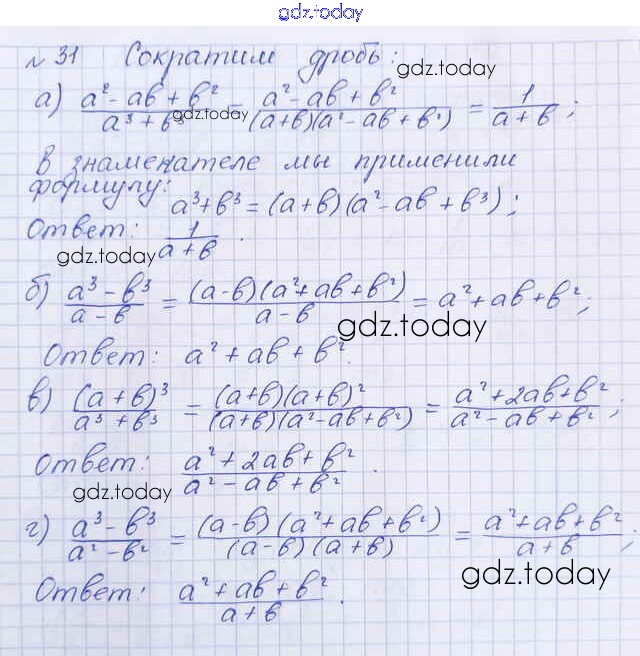 gdz.today
№ 31 Сократим дробь:
gdz.today
а) (a² - ab + b²)/(a³ + b³) = (a² - ab + b²)/((a+b)(a² - ab + b²)) = 1/(a + b);
gdz.today
В знаменателе мы применили
формулу:
a³+b³ = (a+b)(a² - ab + b³);
Ответ: 1/(a + b).
gdz.today
б) (a³ - b³)/(a - b) = ((a-b)(a²+ab+b²))/(a - b) = a²+ab+b²;
gdz.today
Ответ: a² + ab + b².
в) (a + b)³/(a³ + b³) = ((a+b)(a+b)²)/((a+b)(a²-ab+b²)) = (a²+2ab+b²)/(a² - ab + b²);
Ответ: (a² + 2ab + b²)/(a² - ab + b²).
gdz.today
г) (a³ - b³)/(a² - b²) = ((a-b)(a²+ab+b²))/((a-b)(a+b)) = (a²+ab+b²)/(a+b);
gdz.today
Ответ: (a² + ab + b²)/(a + b).